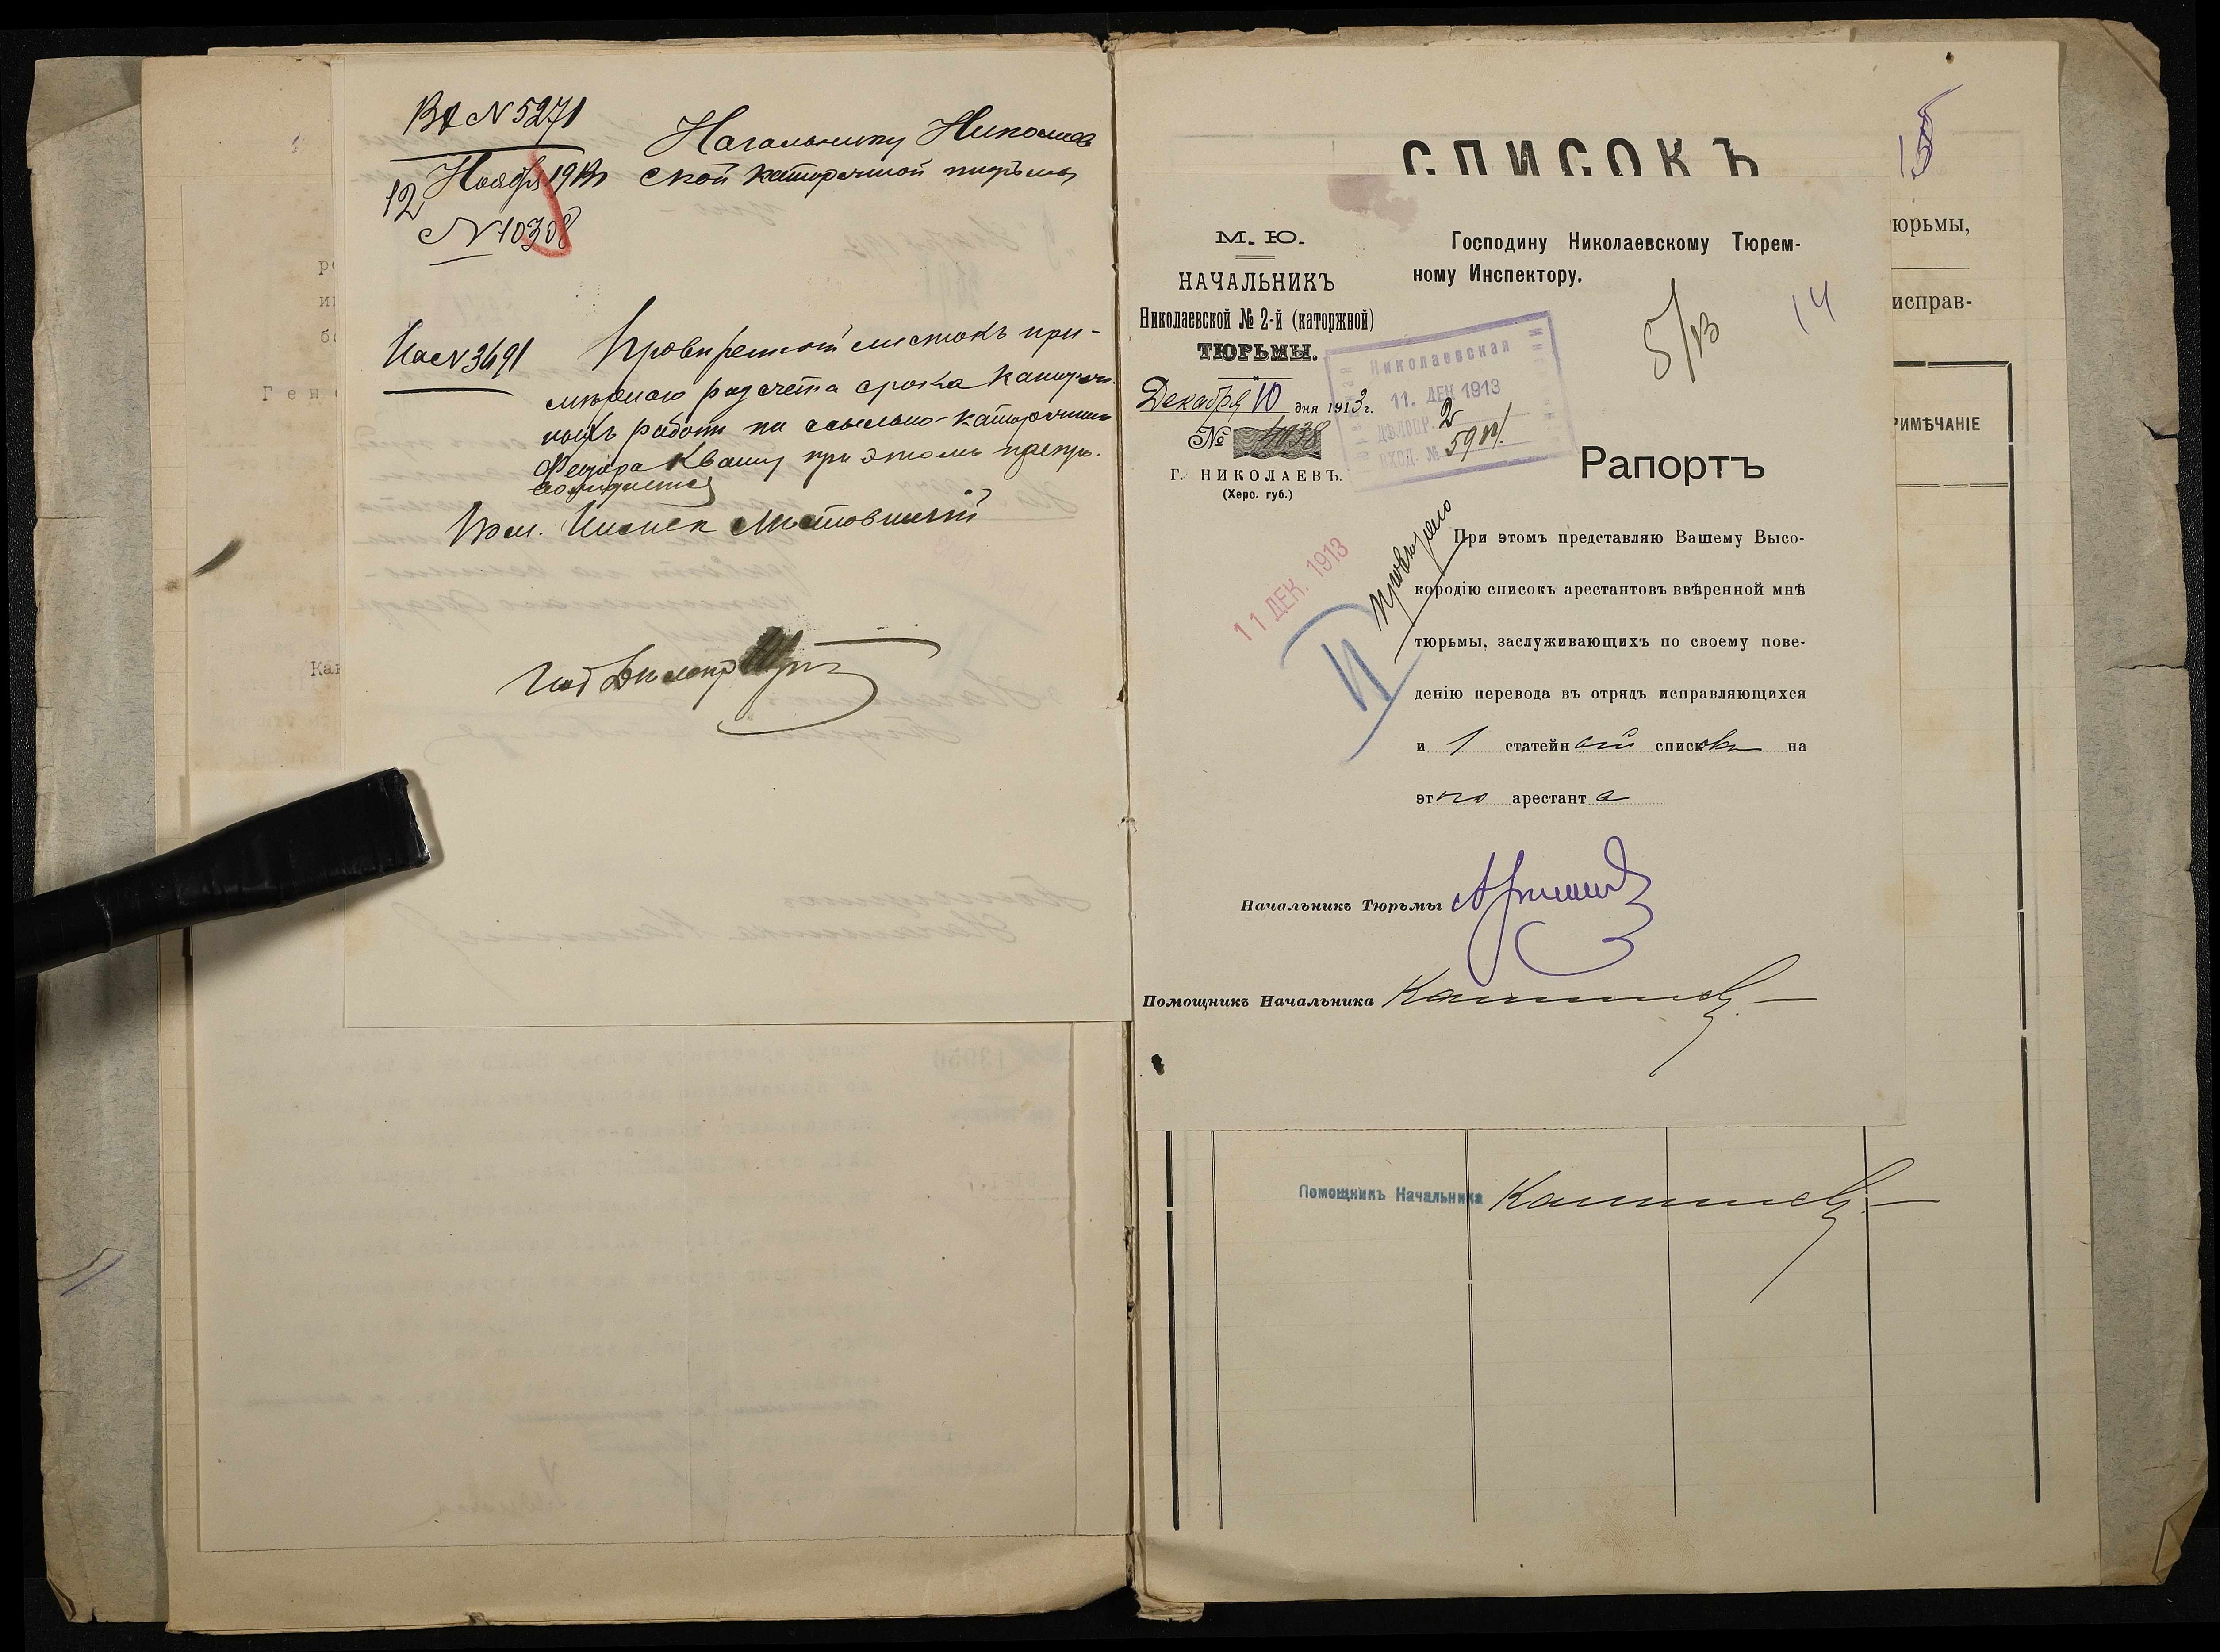 Вх N 5271
12 Ноября 1913
N 10308
Начальнику Николаев
ской каторжной тюрьмы
На N 3691
Провѣренный листокъ при-
мѣрнаго разсчета срока каторж
ныхъ работъ на ссыльно-каторжнаго
Федора Квашу при этомъ препро-
вождается
Тюм. Инспек
СПИСОКЪ
М. Ю.
НАЧАЛЬНИКЪ
Николаевской № 2-й (каторжной)
ТЮРЬМЫ.
Декабря 10 дня 1913 г.
№ 4038
Г. НИКОЛАЕВЪ.
(Херс. губ.)
Господину Николаевскому Тюрем-
ному Инспектору.
5/В
14
Николаевская
11. ДЕК 1913
ДѢЛОПР. 2
ВХОД. №
Рапортъ
11 ДЕК. 1913
Провѣрено
При этомъ представляю Вашему Высо-
кородію списокъ арестантовъ ввѣренной мнѣ
тюрьмы, заслуживающихъ по своему пове-
денію перевода въ отрядъ исправляющихся
и 1 статейный списокъ на
этого арестанта
Начальникъ Тюрьмы
Помощникъ Начальника
Помощникъ Начальника
юрьмы,
исправ-
РИМѢЧАНІЕ